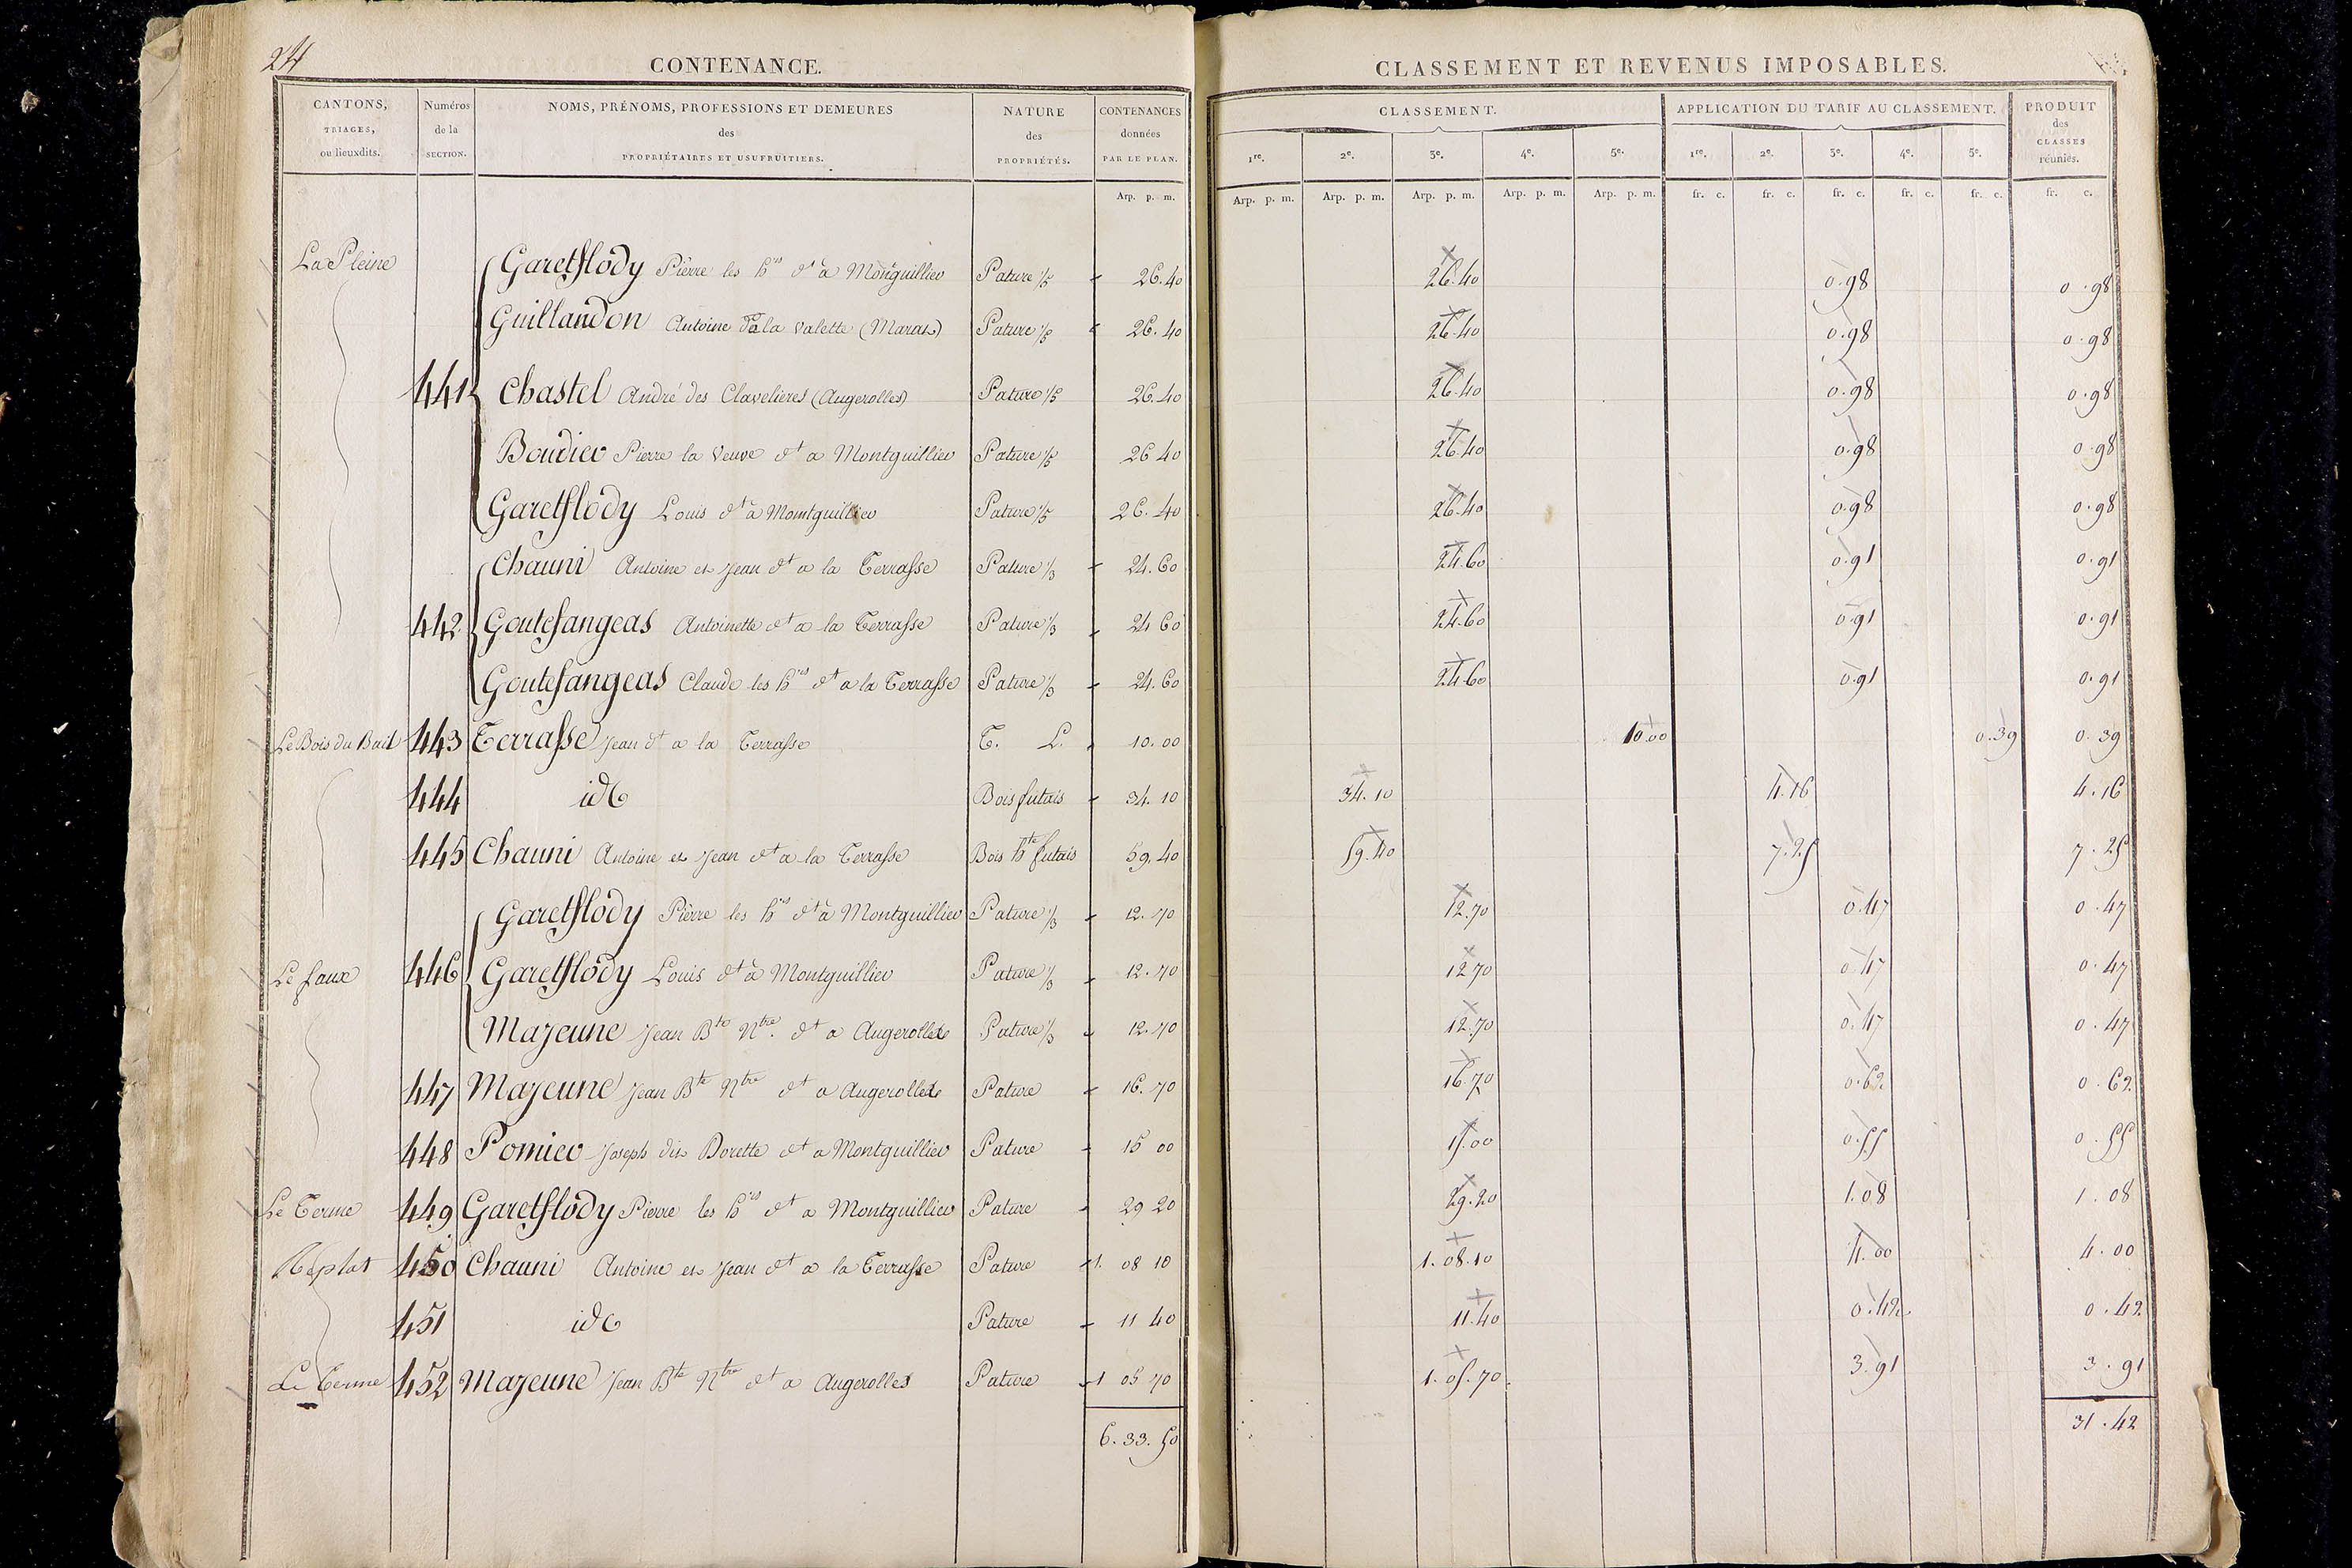 24
CONTENANCE.
CANTONS,
TRIAGES,
ou lieuxdits.
Numéros
de la
SECTION.
NOMS, PRÉNOMS, PROFESSIONS ET DEMEURES
des
PROPRIÉTAIRES ET USUFRUITIERS.
NATURE
des
PROPRIÉTÉS.
CONTENANCES
données
PAR LE PLAN.
Arp. p. m.
CLASSEMENT ET REVENUS IMPOSABLES.
CLASSEMENT. APPLICATION DU TARIF AU CLASSEMENT.
PRODUIT
des
CLASSES
réunies.
1re. 2e. 3e. 4e. 5e. 1re. 2e. 3e. 4e. 5e.
Arp. p. m. Arp. p. m. Arp. p. m. Arp. p. m. Arp. p. m. fr. c. fr. c. fr. c. fr. c. fr. c. fr. c.
La Pleine Garetflody Pierre les hers dt à Montguillier Pature 1/5 26.40 26.40 0.98 0.98
Guillandon Antoine de la Valette (Marat) Pature 1/5 26.40 26.40 0.98 0.98
441 Chastel André des Clavelieres (Augerolles) Pature 1/5 26.40 26.40 0.98 0.98
Boudier Pierre la Veuve dt a Montguillier Pature 1/5 26 40 26.40 0.98 0.98
Garetflody Louis dt à Montguillier Pature 1/5 26.40 26.40 0.98 0.98
Chauni Antoine et Jean dt a la Terrasse Pature 1/3 24.60 24.60 0.91 0.91
442 Goutefangeas Antoinette dt a la Terrasse Pature 1/3 24 60 24.60 0.91 0.91
Goutefangeas Claude les hers dt a la Terrasse Pature 1/3 24.60 24.60 0.91 0.91
Le Bois du Bail 443 Terrasse Jean dt a la Terrasse T. L. 10.00 10.00 0.39 0.39
444 id Bois futais 34.10 34.10 4.16 4.16
445 Chauni Antoine et Jean dt a la Terrasse Bois hte futais 59.40 59.40 7.25 7.25
Garetflody Pierre les hers dt à Montguillier Pature 1/3 12.70 12.70 0.47 0.47
Le faux 446 Garetflody Louis dt à Montguillier Pature 1/3 12.70 12.70 0.47 0.47
Majeune Jean Bte Ntre dt a Augerolles Pature 1/3 12.70 12.70 0.47 0.47
447 Majeune Jean Bte Ntre dt a Augerolles Pature 16.70 16.70 0.62 0.62
448 Pomier Joseph dit Dorette dt a Montguillier Pature 15 00 15.00 0.55 0.55
Le Terme 449 Garetflody Pierre les hers dt a Montguillier Pature 29 20 29.20 1.08 1.08
450 Chauni Antoine et Jean dt a la Terrasse Pature 1. 08 10 1.08.10 4.00 4.00
451 id Pature 11 40 11.40 0.42 0.42
Le Terme 452 Majeune Jean Bte Ntre dt a Augerolles Pature 1 05 70 1.05.70 3.91 3.91
6.33.50 31.42